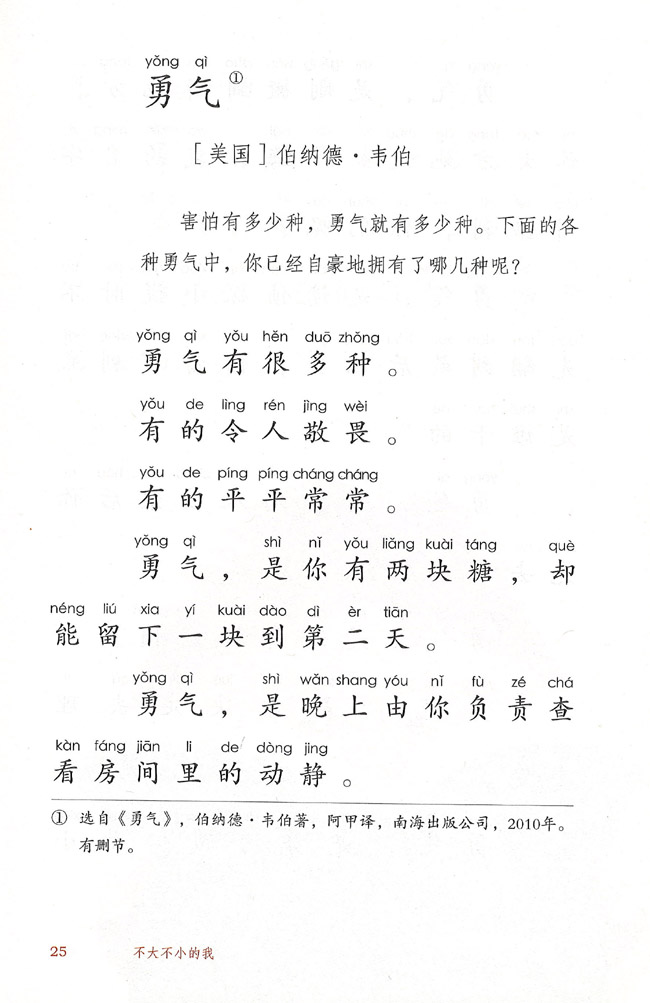 yǒng qì
勇气①
［美国］伯纳德·韦伯
害怕有多少种，勇气就有多少种。下面的各
种勇气中，你已经自豪地拥有了哪几种呢？
yǒng qì yǒu hěn duō zhǒng
勇气有很多种。
yǒu de lìng rén jìng wèi
有的令人敬畏。
yǒu de píng píng cháng cháng
有的平平常常。
yǒng qì shì nǐ yǒu liǎng kuài táng què
勇气，是你有两块糖，却
néng liú xia yí kuài dào dì èr tiān
能留下一块到第二天。
yǒng qì shì wǎn shang yóu nǐ fù zé chá
勇气，是晚上由你负责查
kàn fáng jiān li de dòng jing
看房间里的动静。
① 选自《勇气》，伯纳德·韦伯著，阿甲译，南海出版公司，2010年。
有删节。
25 不大不小的我